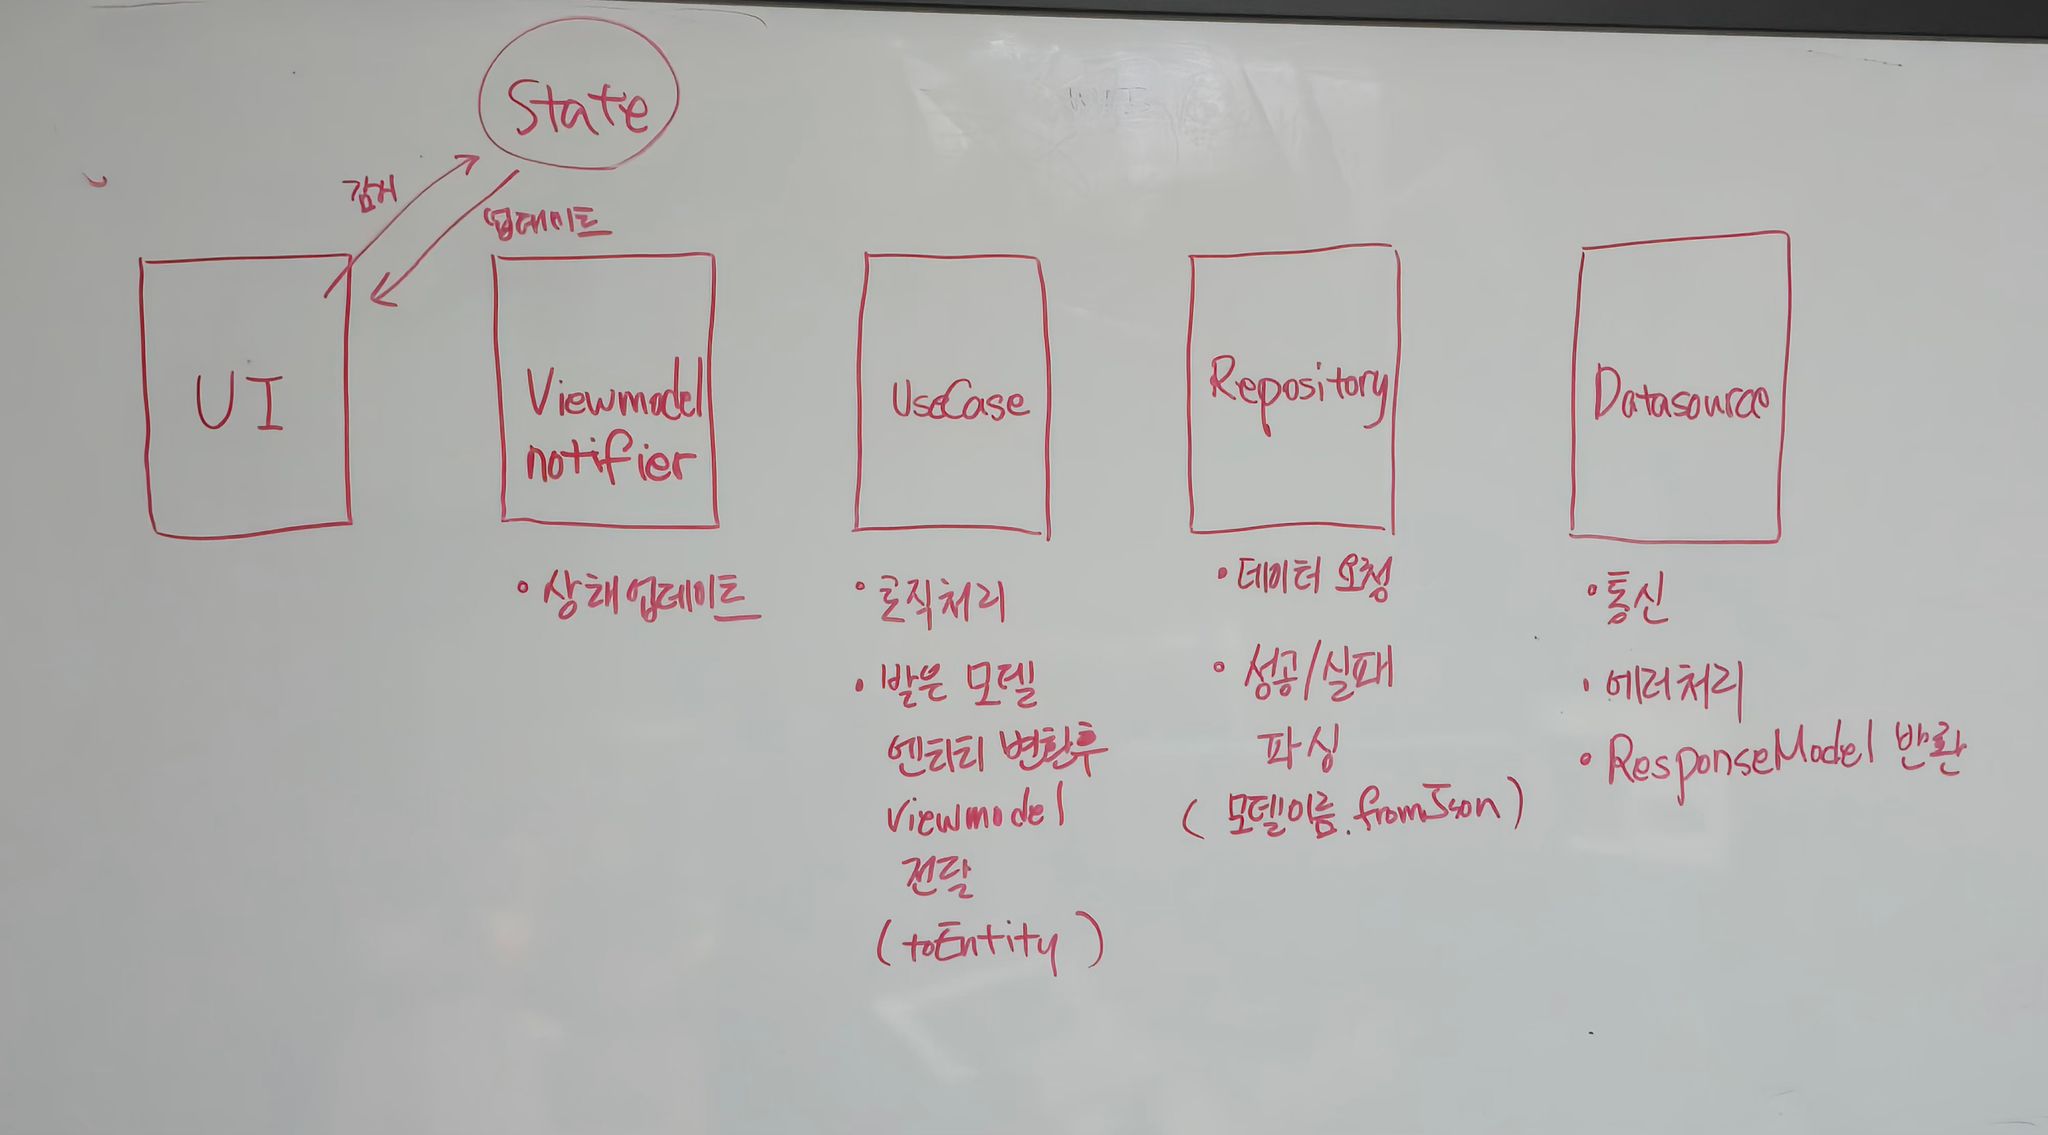 State
감시
업데이트
UI
Viewmodel
notifier
UseCase
Repository
Datasource
• 상태업데이트
• 로직처리
• 받은 모델
엔티티 변환후
viewmodel
전달
(toEntity)
• 데이터 요청
• 성공/실패
파싱
(모델이름.fromJson)
• 통신
• 에러처리
• ResponseModel 반환